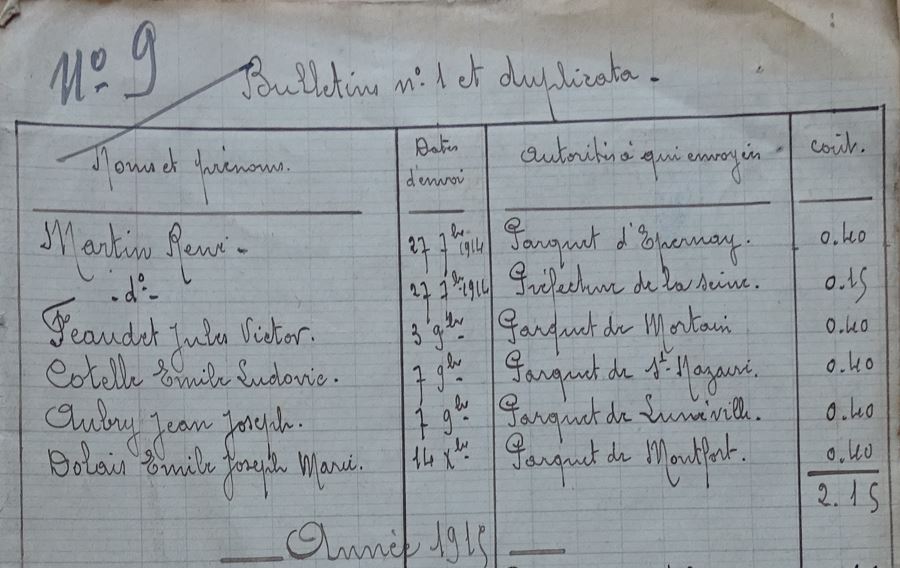 N° 9
Bulletins n° 1 et duplicata -
Noms et prénoms. Dates d'envoi Autorités à qui envoyés coût.
Martin René - 27 7bre 1914 Parquet d'Epernay. 0.40
- d° - 27 7bre 1914 Préfecture de la seine. 0.15
Feaudet Jules Victor. 3 9bre Parquet de Mortain 0.40
Cotelle Emile Ludovic. 7 9bre Parquet de St Nazaire. 0.40
Aubry Jean Joseph. 7 9bre Parquet de Lunéville. 0.40
Dolais Emile Joseph Marie. 14 Xbre Parquet de Montfort. 0.40
2.15
Année 1915